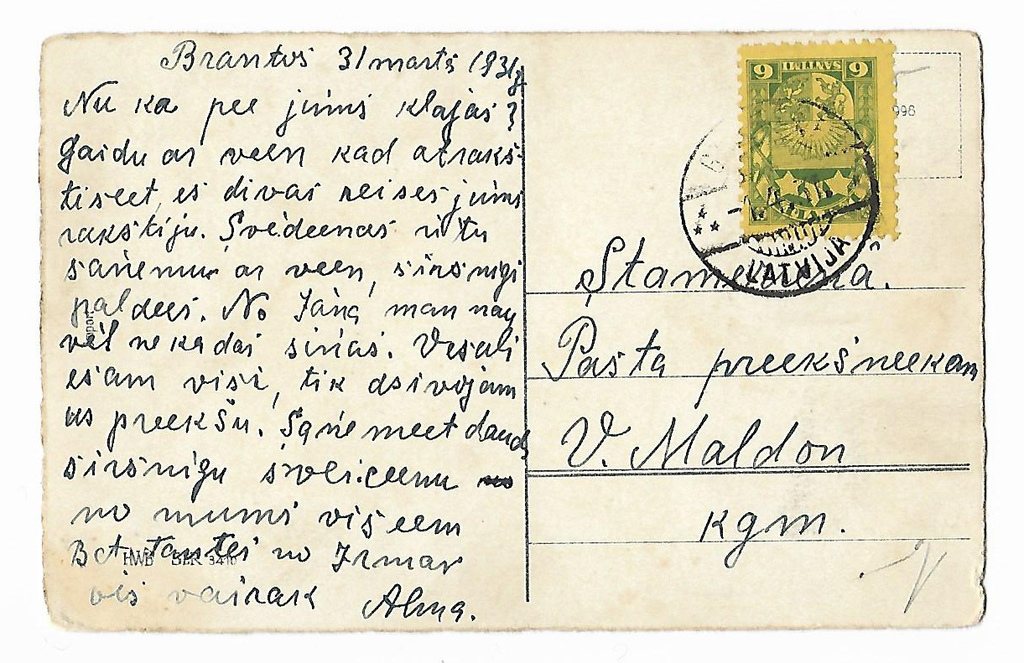 Brantos 31 martā 1931g
Nu ka pee jums klajas?
Gaidu ar veen kad atrakš-
tiseet, es divas reises jums
rakstiju. Svēdeenas ritu
saņemu ar veen, sirsnigi
paldees. No Jāņa man nav
vēl nekadas siņas. Veseli
esam visi, tik dsivojam
us preekšu. Saņemeet daudz
sirsnigu sveiceenu
no mums viseem
Bet tantei no Irmas
vis vairak Alma.
6 SANTIMI 6
LATVIJA
LATVIJA
996
Stameriena.
Pasta preekšneekam
V. Maldon
kgm.
Import.
HWB SER 3410